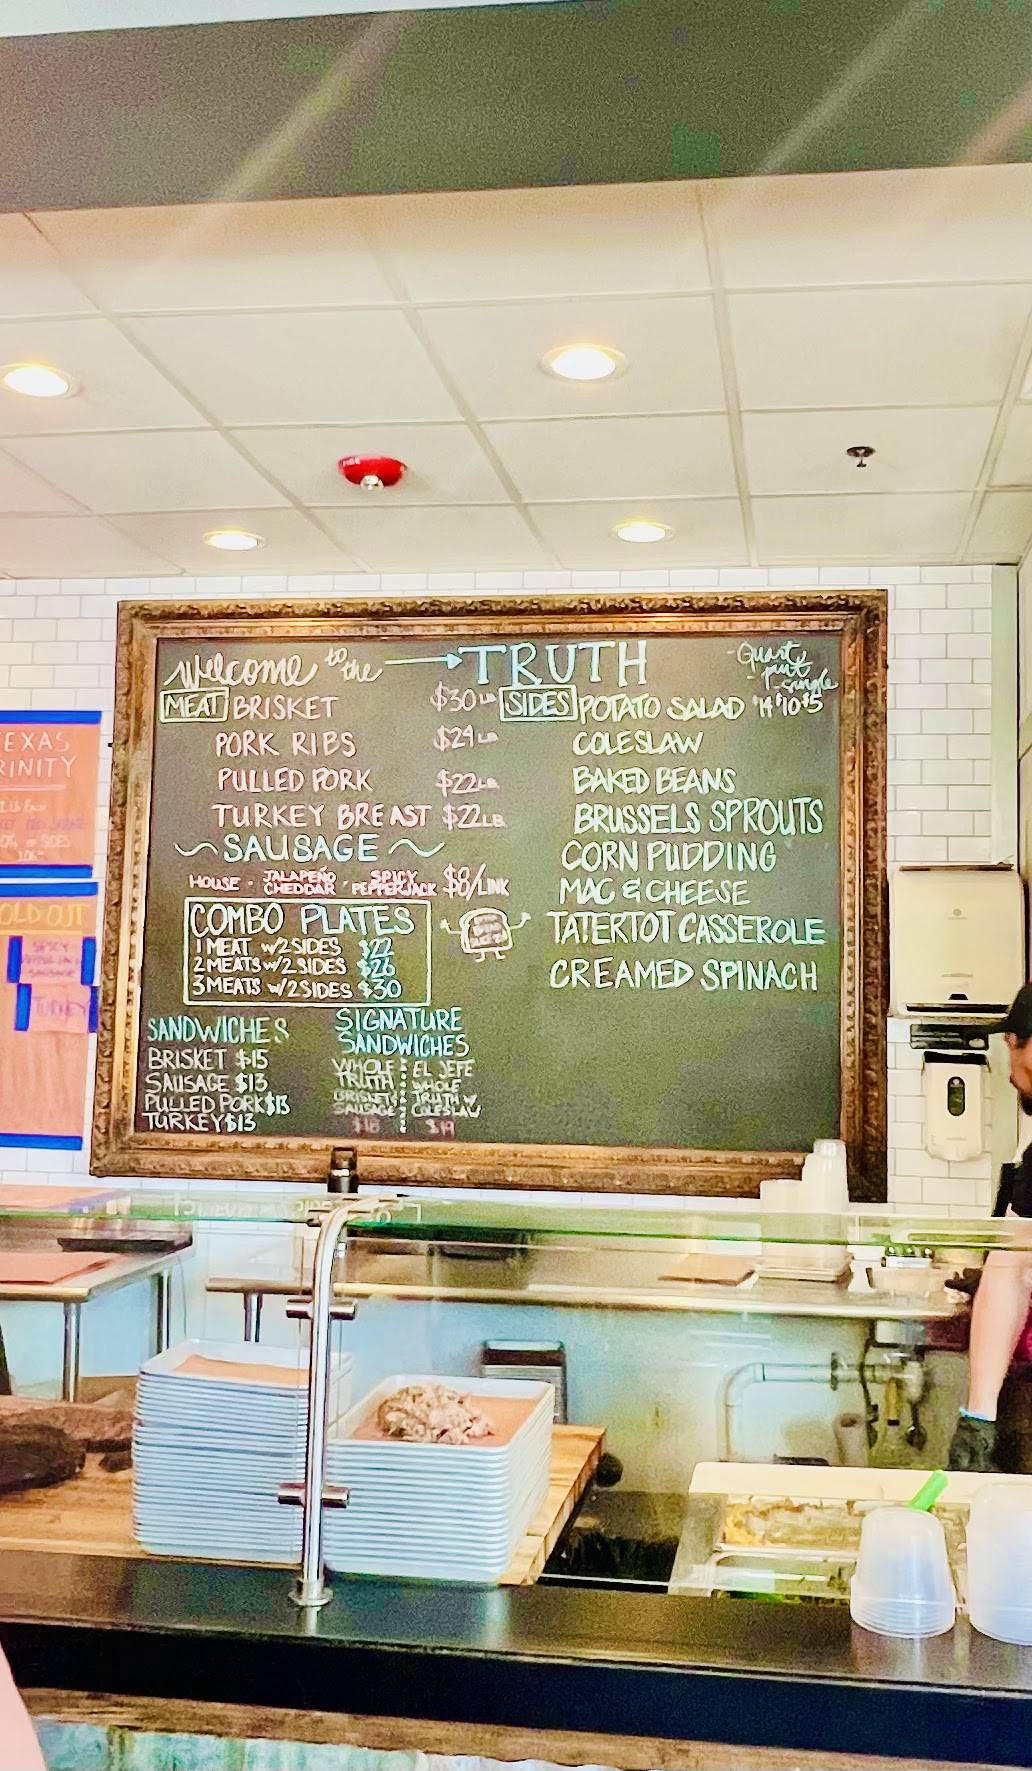 Welcome to the → TRUTH
MEAT BRISKET $30 LB
PORK RIBS $24 LB
PULLED PORK $22 LB
TURKEY BREAST $22 LB
~ SAUSAGE ~
HOUSE · JALAPEÑO CHEDDAR · SPICY PEPPERJACK $8/LINK
COMBO PLATES
1 MEAT w/2 SIDES $22
2 MEATS w/2 SIDES $26
3 MEATS w/2 SIDES $30
SANDWICHES
BRISKET $15
SAUSAGE $13
PULLED PORK $13
TURKEY $13
SIGNATURE
SANDWICHES
WHOLE
TRUTH
BRISKET &
SAUSAGE
$18
EL JEFE
WHOLE
TRUTH w/
COLESLAW
$19
- Quart
- pint
- single
SIDES POTATO SALAD $14 $10 $5
COLESLAW
BAKED BEANS
BRUSSELS SPROUTS
CORN PUDDING
MAC & CHEESE
TATERTOT CASSEROLE
CREAMED SPINACH
EXAS
RINITY
OLD OUT
SPICY
SAUSAGE
TURKEY
FIRE